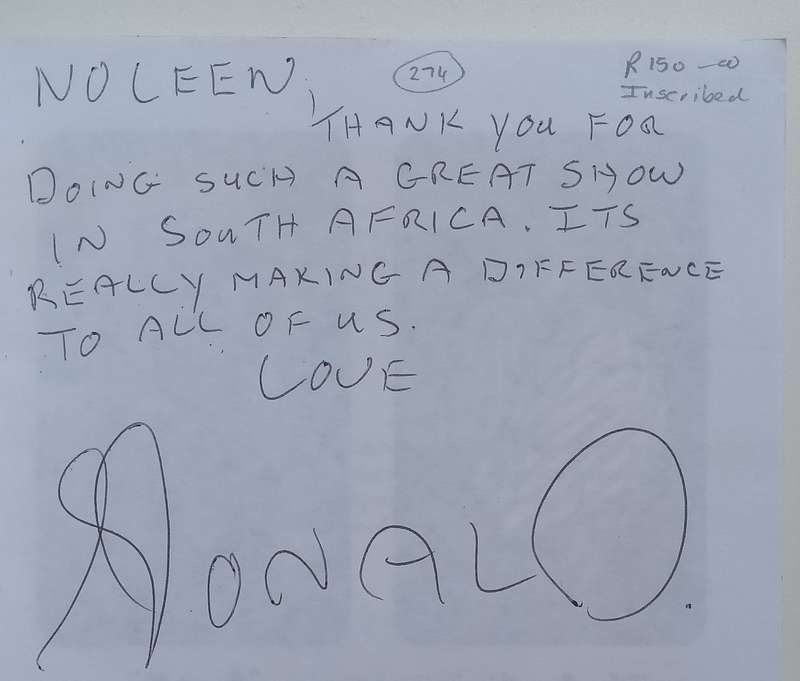 NOLEEN, 274 R150-00
Inscribed
THANK YOU FOR
DOING SUCH A GREAT SHOW
IN SOUTH AFRICA. ITS
REALLY MAKING A DIFFERENCE
TO ALL OF US.
LOVE
RONALD.